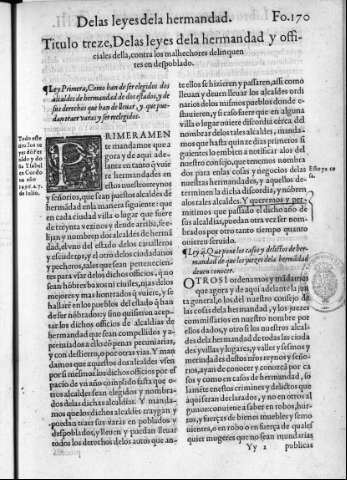 Delas leyes dela hermandad. Fo.170
Titulo treze, Delas leyes dela hermandad y offi-
ciales della, contra los malhechores delinquen
tes en despoblado.
¶Ley Primera, Como han de ser elegidos dos
alcaldes de hermandad de dos estados, y de
sus derechos que han de lleuar, y que pue-
dan traer varas y ser reelegidos.
PRIMERAMEN
te mandamos que a
gora y de aqui ade-
lante en tanto q̃ vuie
re hermandades en
estos nuestros reynos
y señorios, que sean puestos alcaldes de
hermãdad en la manera siguiente: que
en cada ciudad villa o lugar que fuere
de treynta vezinos y dende arriba, se e-
lijan y nombren dos alcaldes de hermã
dad, el vno del estado delos caualleros
y escuderos, y el otro delos ciudadanos
y pecheros, tales que sean pertenecien-
tes para vsar delos dichos officios, q̃ no
sean hõbres baxos ni ciuiles, mas delos
mejores y mas honrados q̃ vuiere, y se
hallarẽ en los pueblos del estado q̃ han
de ser nõbrados: y sino quisieren accep-
tar los dichos officios de alcaldias de
hermandad que sean compellidos y a-
premiados a ello cõ penas pecuniarias,
y con destierro, o por otras vias. Y man
damos que aquellos dos alcaldes vsen
por si mesmos los dichos officios por es
pacio de vn año complido fasta que o-
tros alcaldes sean elegidos y nombra-
dos delas dichas alcaldias. Y manda-
mos que los dichos alcaldes traygan y
puedan traer sus varas en poblados y
despoblados, y lleuen y puedan lleuar
todos los derechos delos autos que an-
te ellos se hizieren y passaren, assi como
lleuan y deuen lleuar los alcaldes ordi
narios delos mismos pueblos donde e-
stuuieren. Y si acaesciere que en alguna
villa o lugar vuiere discordia cerca del
nombrar delos tales alcaldes, mandа-
mos que hasta quinze dias primeros si
guientes lo embien a notificar alos del
nuestro consejo, que tenemos nombra
dos para enlas cosas y negocios delas
nuestras hermandades, y aquellos de-
terminen la dicha discordia, y nõbren
alos tales alcaldes. Y queremos y per-
mitimos que passado el dicho año de
sus alcaldias, puedan otra vez ser nom-
brados por otro tanto tiempo quanto
quieren seruido.
¶Ley ij. Que pone los casos y delictos de her-
mandad de que los juezes dela hermandad
deuen conocer.
OTROSI ordenamos y mandamos
que agora y de aqui adelante la jun
ta general, o los del nuestro consejo de
las cosas dela hermandad, y los juezes
commissarios en nuestro nombre por
ellos dados, y otro si los nuestros alcal-
des dela hermandad de todas las ciuda
des y villas y lugares, y valles y sesmos y
merindades destos nuestros reynos y seño-
rios, ayan de conocer y conozcã por ca-
sos y como en casos de hermandad, so
lamẽte en estos crimines y delictos que
aqui seran declarados, y no en otro al-
guno: conuiene a saber en robos, hur-
tos, y fuerças de bienes muebles y semo
uientes, o en robo o fuerça de quales
quier mugeres que no sean mundarias
Yy 2 publicas